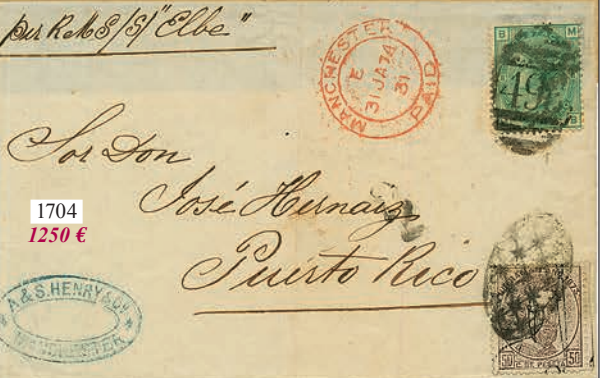 per RMS/S/ "Elbe"
MANCHESTER
E
31 JA 74
31
PAID
B M
498
B
Sor Don
José Hernaiz
Puerto Rico
1704
1250 €
A & S. HENRY & Co
MANCHESTER
50 C. DE PESETA 50